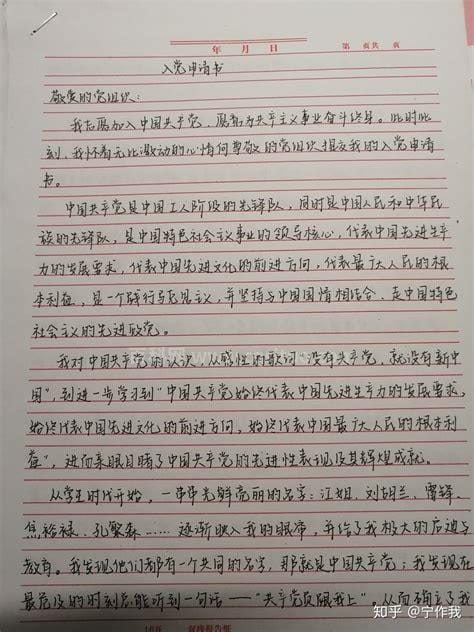 年 月 日 第 页共 页
入党申请书
敬爱的党组织：
我志愿加入中国共产党，愿为共产主义事业奋斗终身。此时此
刻，我怀着无比激动的心情向尊敬的党组织提交我的入党申请
书。
中国共产党是中国工人阶级的先锋队，同时是中国人民和中华民
族的先锋队，是中国特色社会主义事业的领导核心，代表中国先进生产
力的发展要求，代表中国先进文化的前进方向，代表最广大人民的根
本利益，是一个践行马思主义，并坚持与中国国情相结合、走中国特色
社会主义的先进政党。
我对中国共产党的认识，从感性的歌词“没有共产党，就没有新中
国”，到进一步学习到“中国共产党始终代表中国先进生产力的发展要求，
始终代表中国先进文化的前进方向，始终代表中国最广大人民的根本利
益”，进而亲眼目睹了中国共产党的先进性表现及其辉煌成就。
从学生时代开始，一串串光鲜亮丽的名字：江姐、刘胡兰、雷锋、
焦裕禄、孔繁森……逐渐映入我的眼帘，并给了我极大的启迪与
教育。我发现他们都有一个共同的名字，那就是中国共产党；我发现在
最危及的时刻总能听到一句话——“共产党员跟我上”。从而确立了我
知乎 @宁作我